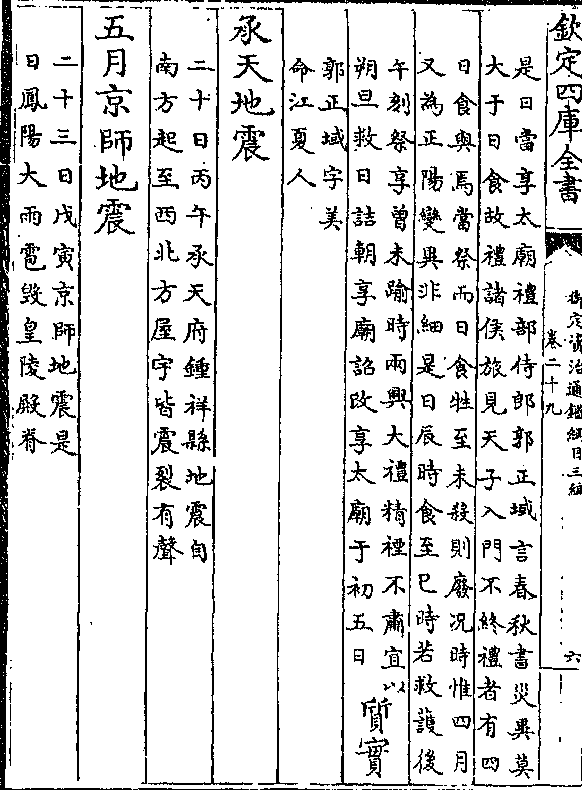 欽定四庫全書
御定資治通鑑綱目三編
卷二十九
六
是日當享太廟禮部侍郎郭正域言春秋書災異莫
大于日食故禮諸侯旅見天子入門不終禮者有四
日食與焉當祭而日食牲至未殺則廢况時惟四月
又為正陽變異非細是日辰時食至巳時若救護後
午刻祭享曾未踰時兩興大禮精禋不肅宜以
朔旦救日詰朝享廟詔改享太廟于初五日
質實
郭正域字美
命江夏人
承天地震
二十日丙午承天府鍾祥縣地震自
南方起至西北方屋宇皆震裂有聲
五月京師地震
二十三日戊寅京師地震是
日鳳陽大雨雹毀皇陵殿脊